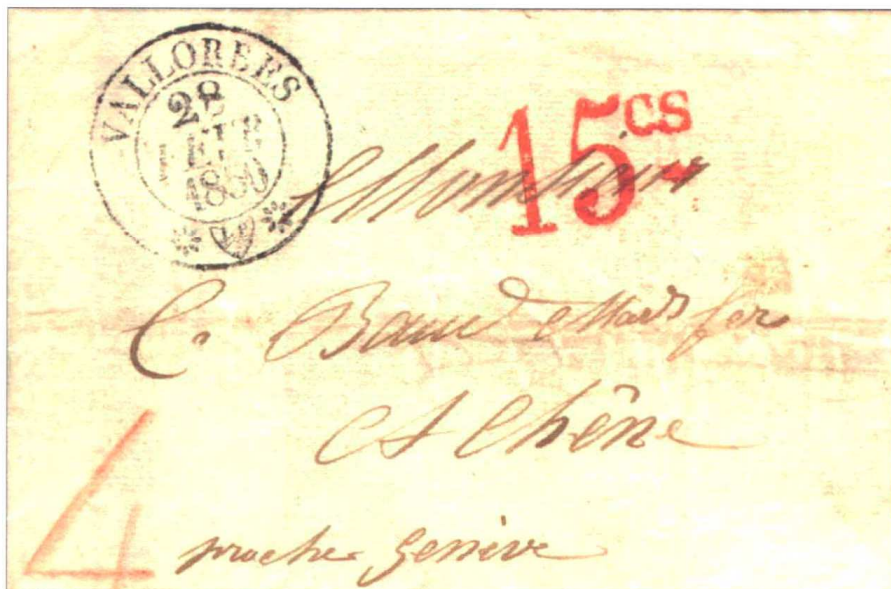 VALLORBES
28
FEVR
1850
15cs
Monsieur
C. Baud Mard fer
A Chêne
proche Genève
4